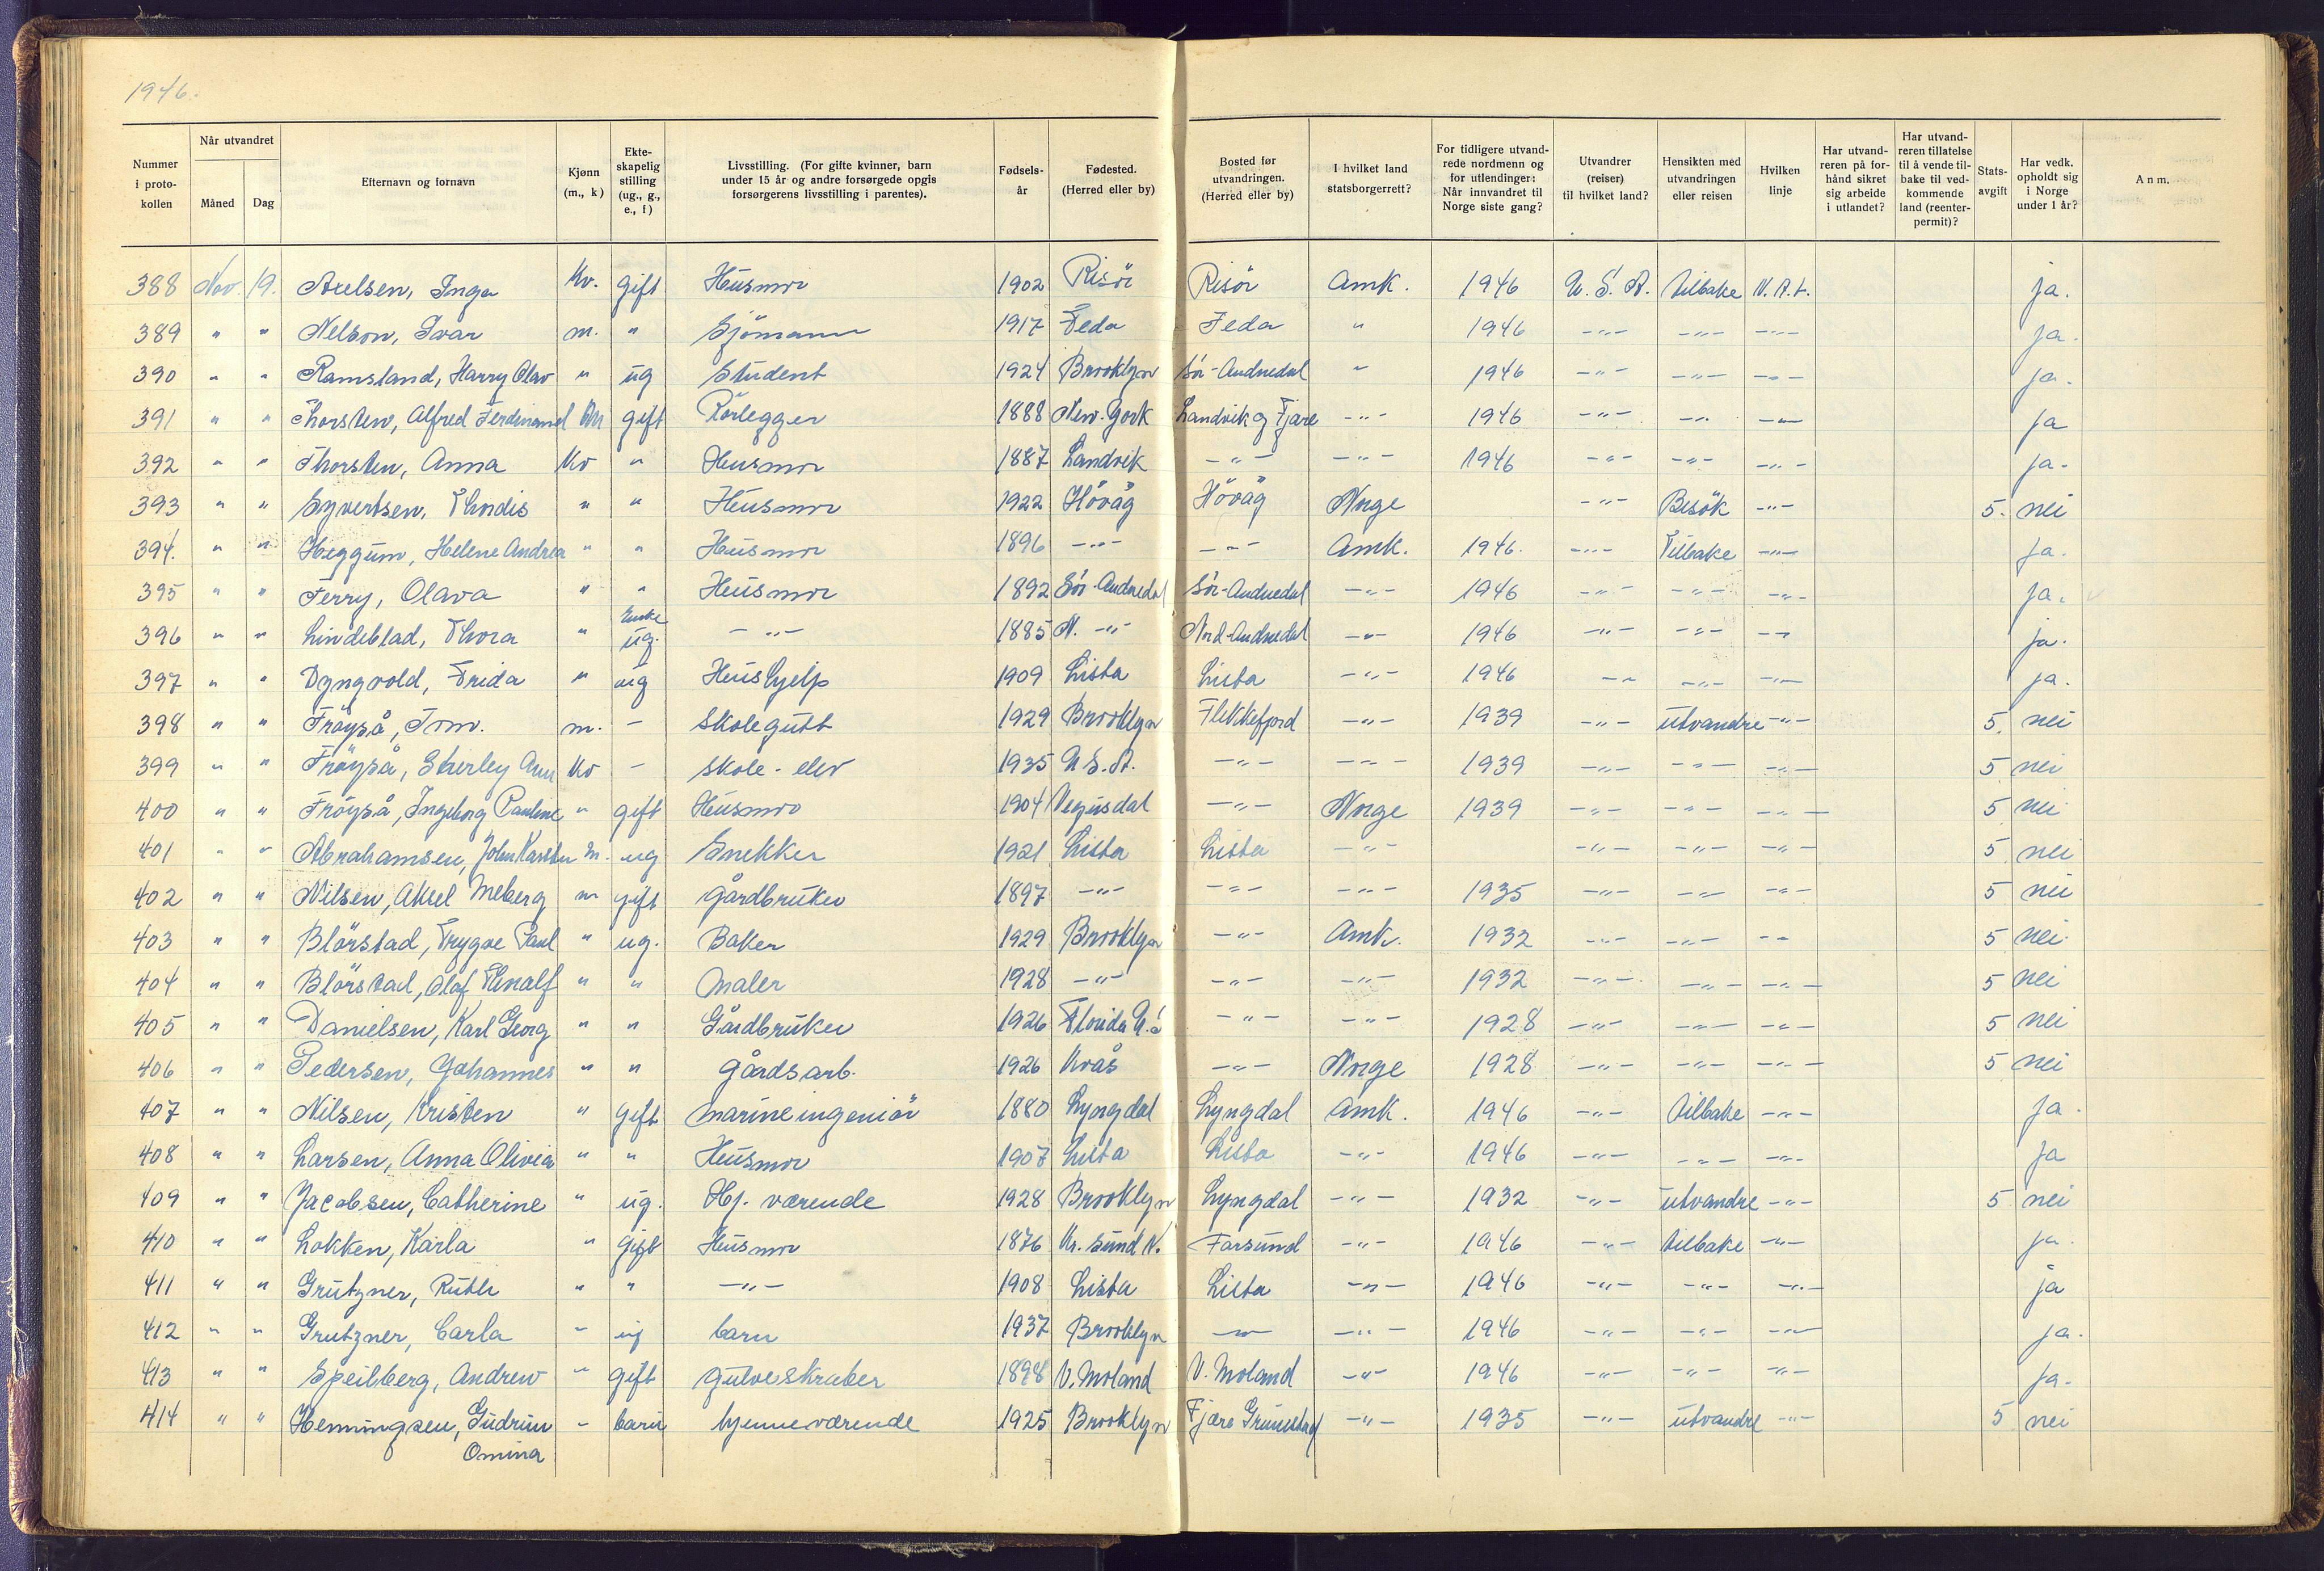 1946.
Nummer i proto- kollen | Når utvandret Måned Dag | Efternavn og fornavn | Kjønn (m., k) | Ekte- skapelig stilling (ug., g., e., f) | Livsstilling. (For gifte kvinner, barn under 15 år og andre forsørgede opgis forsørgerens livsstilling i parentes). | Fødsels- år | Fødested. (Herred eller by) | Bosted før utvandringen. (Herred eller by) | I hvilket land statsborgerrett? | For tidligere utvand- rede nordmenn og for utlendinger: Når innvandret til Norge siste gang? | Utvandrer (reiser) til hvilket land? | Hensikten med utvandringen eller reisen | Hvilken linje | Har utvand- reren på for- hånd sikret sig arbeide i utlandet? | Har utvand- reren tillatelse til å vende til- bake til ved- kommende land (reenter- permit)? | Stats- avgift | Har vedk. opholdt sig i Norge under 1 år? | Anm.
388 Nov. 19. Axelsen, Inga Kv. gift Husmor 1902 Risör Risör Amk. 1946 U.S.A. tilbake N.A.L. ja.
389 " " Nelson, Ivar m. " Sjömann 1917 Feda Feda " 1946 -"- -"- -"- ja.
390 " " Ramsland, Harry Olav " ug Student 1924 Brooklyn Sör-Audnedal " 1946 -"- -"- -"- ja.
391 " " Thorsten, Alfred Ferdinand m gift Rörlegger 1888 New-York Landvik og Fjære -"- 1946 -"- -"- -"- ja
392 " " Thorsten, Anna Kv " Husmor 1887 Landvik -"- -"- 1946 -"- -"- -"- ja.
393 " " Syvertsen, Thordis " " Husmor 1922 Hövåg Hövåg Norge -"- Besök -"- 5. nei
394. " " Heggum, Helene Andrea " " Husmor 1896 -"- -"- Amk. 1946. -"- Tilbake -"- ja.
395 " " Ferry, Olava " " Husmor 1892 Sör-Audnedal Sör-Audnedal -"- 1946 -"- -"- -"- ja.
396 " " Lindeblad, Thora " Enke ug. -"- 1885 N. -"- Nord-Audnedal -"- 1946 -"- -"- -"- ja.
397 " " Dyngvold, Frida " ug Hushjelp 1909 Lista Lista -"- 1946 -"- -"- -"- ja.
398 " " Fröyså, Tom. m. - Skolegutt 1929 Brooklyn Flekkefjord -"- 1939 -"- utvandre -"- 5. nei
399 " " Fröyså, Sherley Ann Kv - skole-elev 1935 U.S.A. -"- -"- 1939 -"- -"- -"- 5 nei
400 " " Fröyså, Ingeborg Pauline " gift Husmor 1904 Vegusdal -"- Norge 1939 -"- -"- -"- 5 nei
401 " " Abrahamsen, John Karsten m. ug Snekker 1921 Lista Lista -"- -"- -"- -"- 5. nei
402 " " Nilsen, Aksel Meberg m gift gårdbruker 1897 -"- -"- -"- 1935 -"- -"- -"- 5 nei
403 " " Blörstad, Trygve Paul " ug. Baker 1929 Brooklyn -"- Amk. 1932 -"- -"- -"- 5 nei
404 " " Blörstad, Olaf Thoralf " " maler 1928 -"- -"- -"- 1932 -"- -"- -"- 5 nei
405 " " Danielsen, Karl Georg " " Gårdbruker 1926 Florida U.S -"- -"- 1928 -"- -"- -"- 5 nei
406 " " Pedersen, Johannes " " gårdsarb. 1926 Kvås -"- Norge 1928 -"- -"- -"- 5 nei
407 " " Nilsen, Kristen " gift marineingeniör 1880 Lyngdal Lyngdal Amk. 1946 -"- tilbake -"- ja.
408 " " Larsen, Anna Olivia " " Husmor 1907 Lista Lista -"- 1946 -"- -"- -"- ja
409 " " Jacobsen, Catherine " ug. Hj. værende 1928 Brooklyn Lyngdal -"- 1932 -"- utvandre -"- 5 nei
410 " " Lokken, Karla " gift Husmor 1876 Kr. sund N. Farsund -"- 1946 -"- tilbake -"- ja.
411 " " Grutzner, Ruth " " -"- 1908 Lista Lista -"- 1946 -"- -"- -"- ja
412 " " Grutzner, Carla " ug barn 1937 Brooklyn -"- -"- 1946 -"- -"- -"- ja.
413 " " Speilberg, Andrew " gift gulveskraber 1898 V. Moland V. Moland -"- 1946 -"- -"- -"- ja.
414 " " Henningsen, Gudrun " barn hjemmeværende 1925 Brooklyn Fjære Grimstad -"- 1935 -"- utvandre -"- 5 nei
Omina